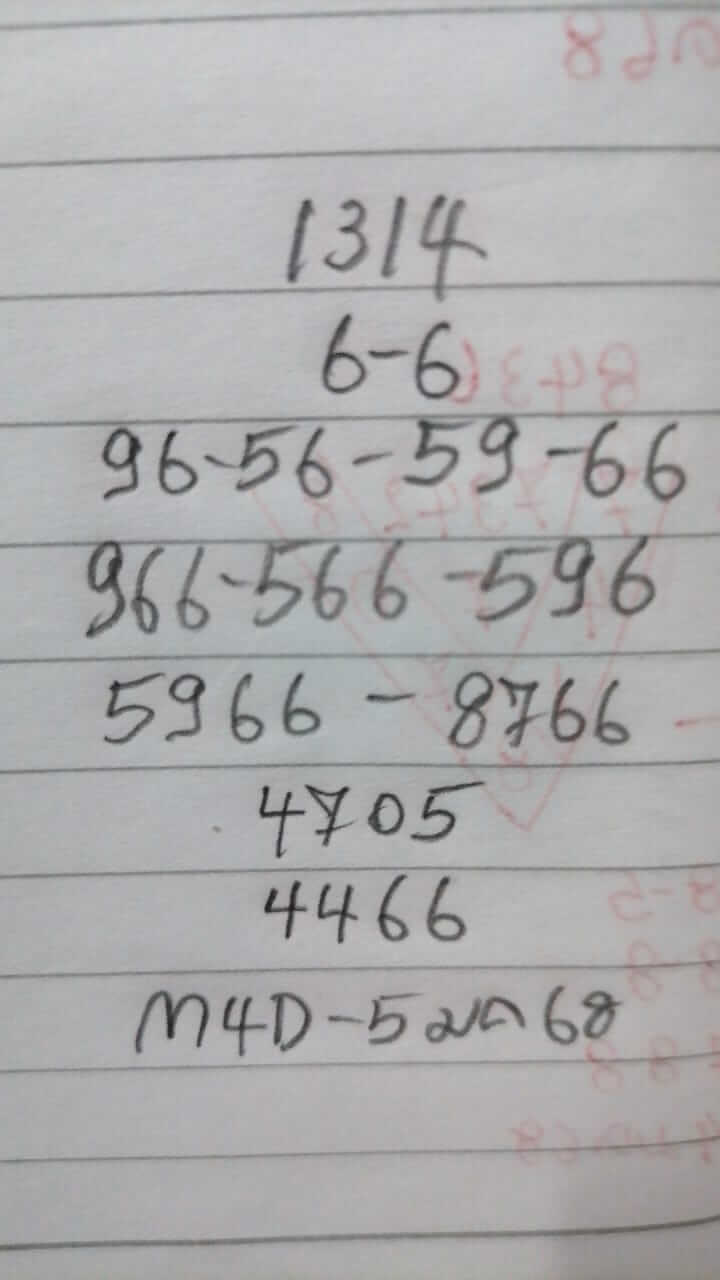 1314
6-6
96-56-59-66
966-566-596
5966-8766
4705
4466
M4D-5มค68